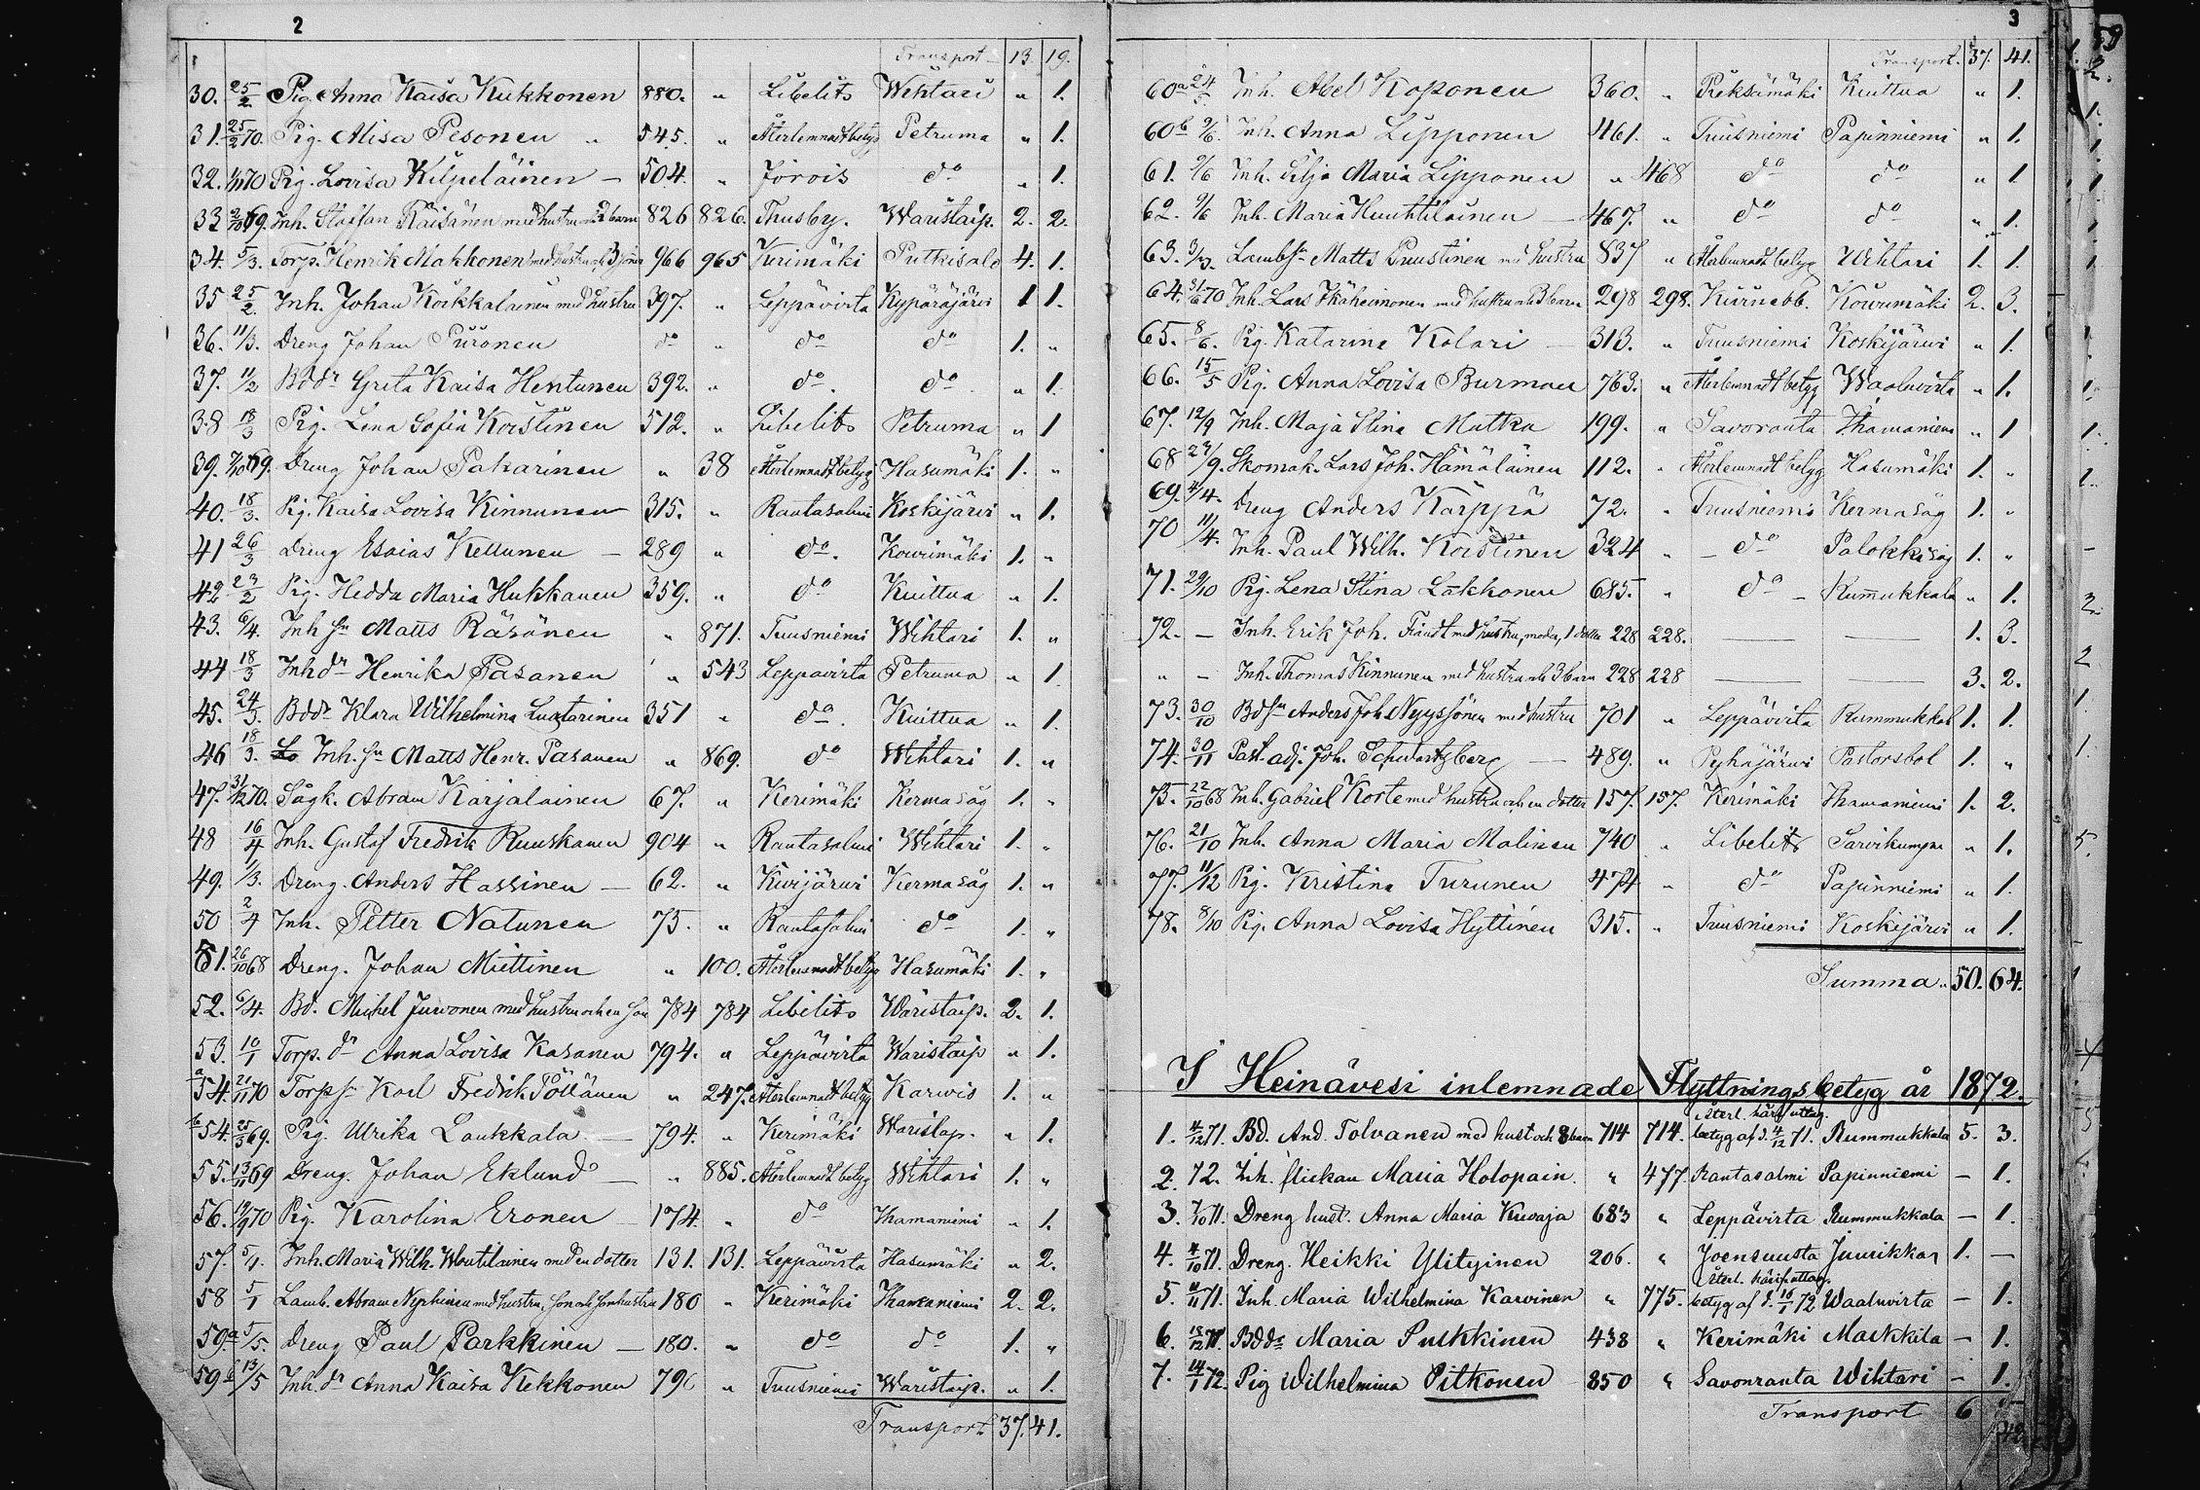 2
Transport 13. 19.
30. 25/2 Pig. Anna Kaisa Kukkonen 880. " Libelits Wihtari " 1.
31. 25/2 70. Pig. Alisa Pesonen " 545. " Återlemnadt betyg Petruma " 1.
32. 1/11 70 Pig. Lovisa Kilpeläinen — 504. " Jorois do " 1.
33 2/10 69. Inh. Staffan Räisänen med hustru och 2 barn 826 826. Thusby. Waristaip. 2. 2.
34. 5/3. Torp. Henrik Makkonen med hustru och 3 söner 966 965 Kerimäki Putkisalo 4. 1.
35 25/2. Inh. Johan Koikkalainen med hustru 397. " Leppävirta Kypäräjärvi 1 1.
36. 11/3. Dreng Johan Piironen do " do do 1. "
37. 11/2 Bddr Greta Kaisa Hentunen 392. " do. do " 1.
38 18/3 Pig. Lena Sofia Koistinen 512. " Libelits Petruma " 1
39. 7/10 69. Dreng Johan Pakarinen " 38 Återlemnadt betyg Hasumäki 1. "
40. 18/3. Pig. Kaisa Lovisa Kinnunen 315. " Rantasalmi Koskijärvi " 1.
41 26/3 Dreng Esaias Kettunen — 289 " do. Kowrimäki 1. "
42 23/2 Pig. Hedda Maria Hukkanen 359. " do Kuittua " 1.
43. 6/4. Inh sn Matts Räsänen " 871. Tuusniemi Wihtari 1. "
44 18/3 Inh dr Henrika Pasanen " 543 Leppavirta Petruma " 1
45. 24/3. Bddr Klara Wilhelmina Luttarinen 351 " do. Kuittua " 1
46 18/3. Inh. sn Matts Henr. Pasanen " 869. do Wihtari 1. "
47. 31/12 70. Sågk. Abram Karjalainen 67. " Kerimäki Kerma såg 1. "
48 16/4 Inh. Gustaf Fredrik Ruuskanen 904 " Rantasalmi Wihtari 1. "
49. 1/3. Dreng. Anders Hassinen — 62. " Kivijärvi Kerma såg 1. "
50 2/4 Inh. Petter Natunen 75. " Rantasalmi do 1. "
51. 26/10 68 Dreng. Johan Miettinen " 100. Återlemnadt betyg Hasumäki 1. "
52. 6/4. Bd. Michel Juvonen med hustru och en son 784 784 Libelits Waristaip. 2. 1.
53. 10/1 Torp. dr Anna Lovisa Kasanen 794. " Leppävirta Waristaip " 1.
a 54. 21/11 70 Torp sn Karl Fredrik Pöllänen " 247. Återlemnadt betyg Karvio 1. "
b 54. 25/3 69. Pig. Ulrika Laukkala — 794. " Kerimäki Waristaip. " 1.
55. 13/11 69 Dreng. Johan Eklund — " 885. Återlemnadt betyg Wihtari 1. "
56. 19/9 70 Pig. Karolina Eronen 174. " do Ihamaniemi " 1.
57. 5/1. Inh. Maria Wilh. Woutilainen med en dotter 131. 131. Leppävirta Hasumäki " 2.
58 5/1 Lamb. Abram Nyphinen med hustru, son och sonhustru 180 " Kerimäki Ihamaniemi 2. 2.
59a 5/5. Dreng Paul Parkkinen — 180. " do do 1. "
59b 13/5 Inh. dr Anna Kaisa Kekkonen 796 " Tuusniemi Waristaip. " 1.
Transport 37. 41.
3
Transport. 37. 41.
60a 24/5 Inh. Abel Koponen 360. " Pieksämäki Kuittua " 1.
60b 9/6. Inh. Anna Lipponen 461. " Tuusniemi Papinniemi " 1.
61. 9/6 Inh. Silja Maria Lipponen " 468 do do " 1.
62. 9/6 Inh. Maria Huuhtilainen — 467. " do do " 1.
63. 3/3. Lambsn Matts Puustinen med hustru 837 " Återlemnadt betyg Wihtari 1. 1.
64. 31/6 70 Inh. Lars Ikäheimonen med hustru och 3 barn 298 298. Kiuruebb. Kowrimäki 2. 3.
65. 8/6. Pig. Katarina Kolari — 313. " Tuusniemi Koskijärvi " 1.
66. 15/5 Pig. Anna Lovisa Burman 763. " Återlemnadt betyg Waaluvirta " 1.
67. 12/9 Inh. Maja Stina Matka 199. " Savoranta Ihamaniemi " 1
68 27/9. Skomak. Lars Joh. Hämäläinen 112. " Återlemnadt betyg Hasumäki 1. "
69. 4/4. Dreng Anders Kärppä 72. " Tuusniemi Kerma såg 1. "
70 11/4. Inh. Paul Wilh. Koistinen 324 " — do Palokki såg 1. "
71. 29/10 Pig. Lena Stina Lakkonen 685. " do — Rummukkala " 1.
72. — Inh. Erik Joh. Friandt med hustru, moder, 1 dotter 228 228. — — 1. 3.
" — Inh. Thomas Kinnunen med hustru och 3 barn 228 228 — — 3. 2.
73. 30/10 Bdsn Anders Joh. Nyyssönen med hustru 701 " Leppävirta Rummukkal 1. 1.
74. 30/11 Past. adj. Joh. Schwartzberg — 489. " Pyhäjärvi Pastorsbol 1. "
75. 22/10 68 Inh. Gabriel Korte med hustru och en dotter 157. 157. Kerimäki Ihamaniemi 1. 2.
76. 21/10 Inh. Anna Maria Malinen 740 " Libelits Sarvikumpu " 1.
77. 11/12 Pig. Kristina Turunen 474 " do Papinniemi " 1.
78. 8/10 Pig. Anna Lovisa Hyttinen 315. " Tuusniemi Koskijärvi " 1.
Summa. 50. 64.
I Heinävesi inlemnade Flyttningsbetyg år 1872.
1. 4/12 71. Bd. And. Tolvanen med hust och 8 barn 714 714. återl. härif. uttag. betyg af d. 4/12 71. Rummukkala 5. 3.
2. 72. Inh. flickan Maria Holopain. " 477. Rantasalmi Papinniemi — 1.
3. 7/10 71. Dreng hust. Anna Maria Kuvaja 683 " Leppävirta Rummukkala — 1.
4. 4/10 71. Dreng. Heikki Ylityinen 206. " Joensuusta Juurikkan 1. —
5. 11/11 71. Inh. Maria Wilhelmina Karvinen " 775. återl. härif. uttag. betyg af d. 16/1 72 Waaluvirta — 1.
6. 15/12 71. Bddr Maria Pulkkinen 438 " Kerimäki Maskkila — 1.
7. 14/1 72. Pig Wilhelmina Pitkonen 850 " Savonranta Wihtari — 1.
Transport 6